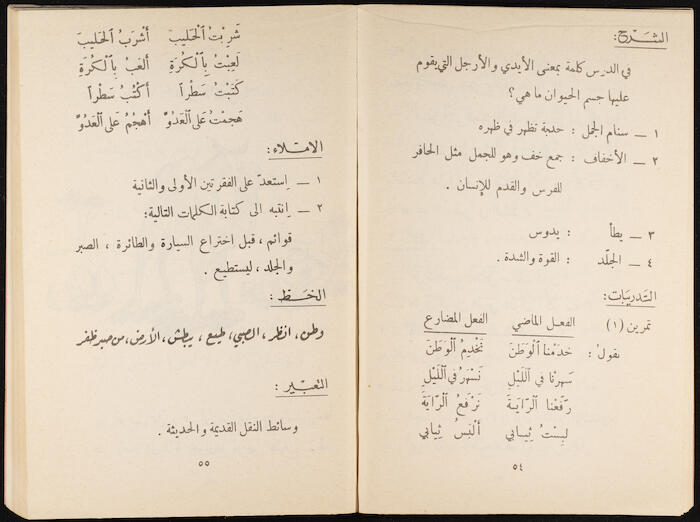 الشَّرْحُ :
في الدرس كلمة بمعنى الأيدي والأرجل التي يقوم
عليها جسم الحيوان ما هي ؟
١ – سنام الجمل : حدبة تظهر في ظهره
٢ – الأخفاف : جمع خف وهو للجمل مثل الحافر
للفرس والقدم للإنسان .
٣ – يطأ : يدوس
٤ – الجَلَد : القوة والشدة .
التدريبات :
تمرين (١) الفعل الماضي الفعل المضارع
نقول : خدمْنا الْوَطَنَ نَخْدِمُ الْوَطَنَ
سَهِرْنا في اللَّيْلِ نَسْهَرُ في اللَّيْلِ
رَفَعْنا الرّايَةَ نَرْفَعُ الرّايَةَ
لبِسْتُ ثِيابي أَلْبَسُ ثِيابي
٥٤
شَرِبْتُ الْحَليبَ أَشْرَبُ الْحَليبَ
لَعِبْتُ بِالْكُرَةِ أَلعَبُ بِالْكُرَةِ
كَتَبْتُ سَطْراً أَكْتُبُ سَطْراً
هَجمْتُ عَلى الْعَدُوِّ أَهْجُمُ عَلى الْعَدُوِّ
الإملاء :
١ – إستعدّ على الفقرتين الأولى والثانية
٢ – إنتبه الى كتابة الكلمات التالية :
قوائم ، قبل اختراع السيارة والطائرة ، الصبر
والجلد ، ليستطيع .
الخط :
وطن ، انظر ، الصبي ، طيع ، يبطش ، الأرض ، من صبر ظفر
التعبير :
وسائط النقل القديمة والحديثة .
٥٥